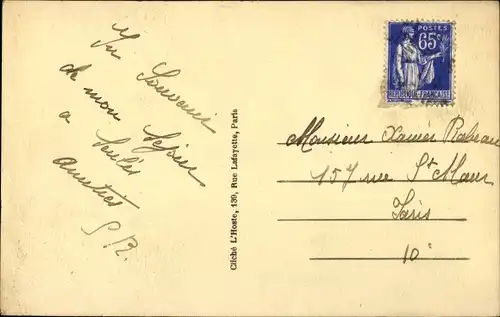 Un Souvenir
de mon Séjour
a Senlis
Amitiés
S.R.
Cliché L'Hoste, 139, Rue Lafayette, Paris
POSTES
65c
REPUBLIQUE FRANÇAISE
Monsieur Xavier
157 rue St Maur
Paris
10e